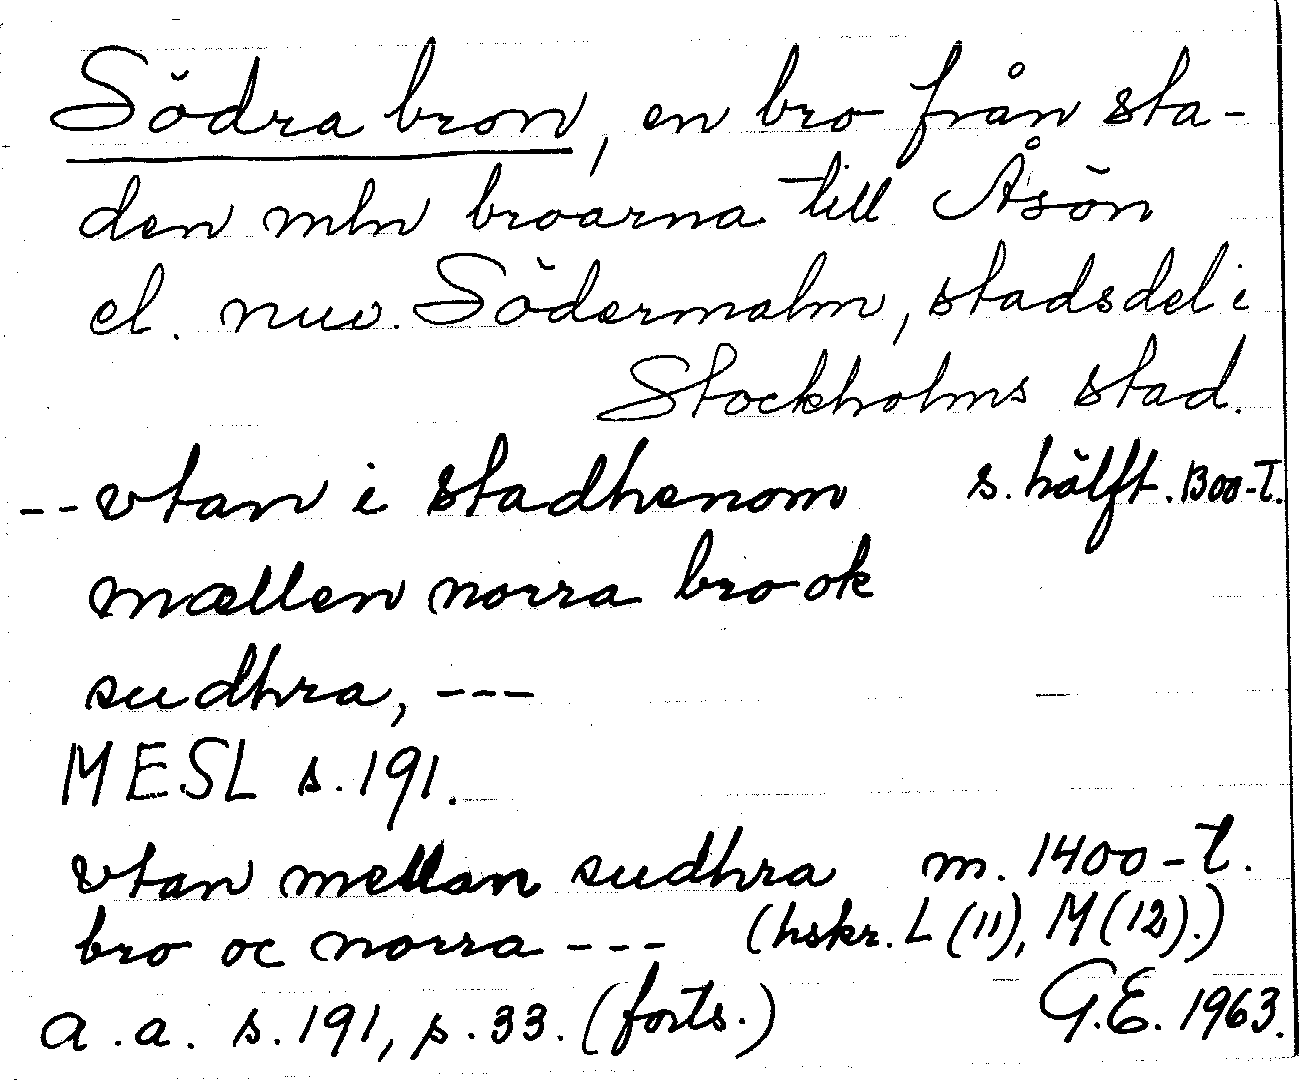 Södra bron, en bro från sta-
den mln broarna till Åsön
el. nuv. Södermalm, stadsdel i
Stockholms stad.
--vtan i stadhenom s. hälft. 1300-T.
mællen norra bro ok
sudhra, ---
MESL s. 191.
vtan mellan sudhra m. 1400-T.
bro oc norra --- (hskr. L (11), M (12).)
a.a. s. 191, p. 33. (forts.) G.E. 1963.